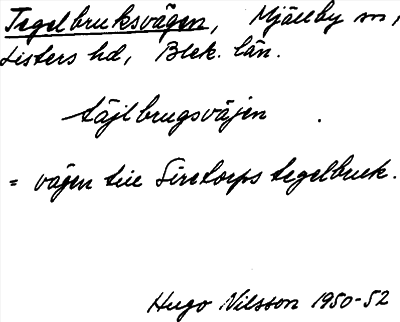 Tegelbruksvägen, Mjällby sn,
Listers hd, Blek. län.
täjlbrugsväjen.
= vägen till Siretorps tegelbruk.
Hugo Nilsson 1950-52